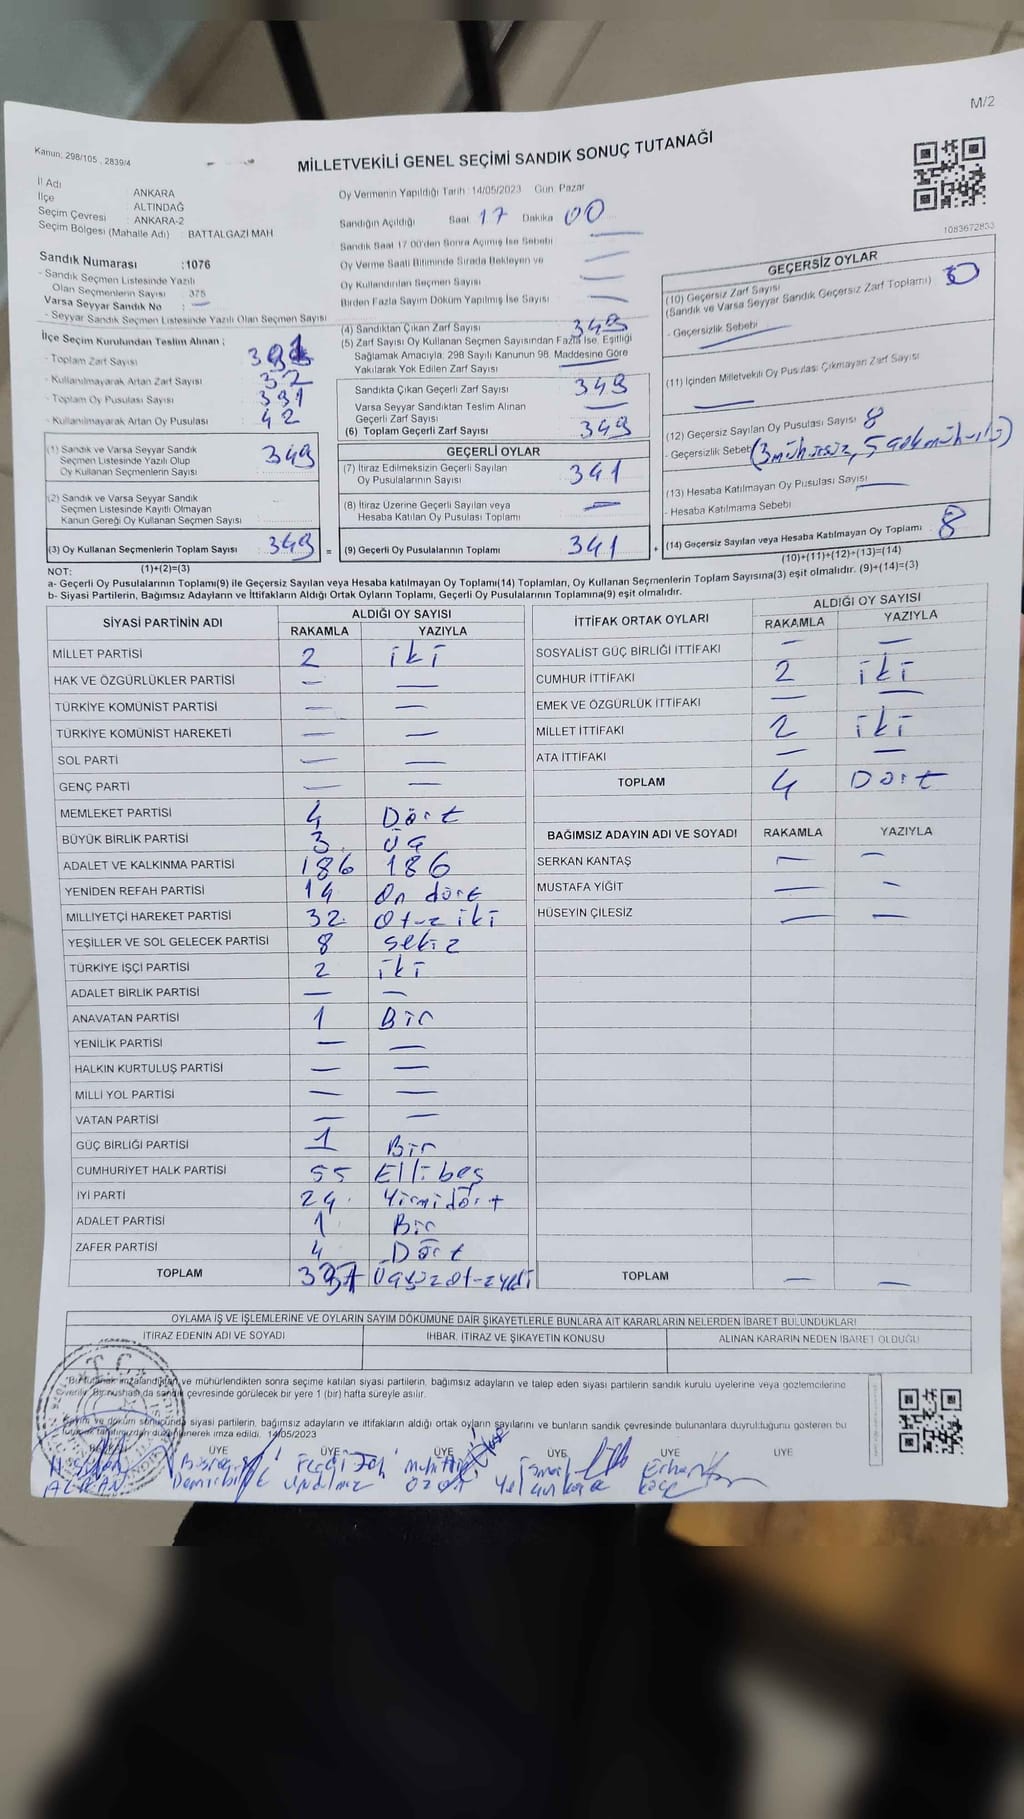 M/2
Kanun: 298/105 , 2839/4
MİLLETVEKİLİ GENEL SEÇİMİ SANDIK SONUÇ TUTANAĞI
İl Adı ANKARA
İlçe ALTINDAĞ
Seçim Çevresi : ANKARA-2
Seçim Bölgesi (Mahalle Adı) : BATTALGAZİ MAH.
Sandık Numarası :1076
- Sandık Seçmen Listesinde Yazılı
Olan Seçmenlerin Sayısı : 375
Varsa Seyyar Sandık No : —
- Seyyar Sandık Seçmen Listesinde Yazılı Olan Seçmen Sayısı
Oy Vermenin Yapıldığı Tarih : 14/05/2023 Gün: Pazar
Sandığın Açıldığı Saat 17 Dakika 00
Sandık Saat 17.00'den Sonra Açılmış İse Sebebi —
Oy Verme Saati Bitiminde Sırada Bekleyen ve —
Oy Kullandırılan Seçmen Sayısı —
Birden Fazla Sayım Döküm Yapılmış İse Sayısı —
1083672833
İlçe Seçim Kurulundan Teslim Alınan ;
- Toplam Zarf Sayısı
- Kullanılmayarak Artan Zarf Sayısı : 32
- Toplam Oy Pusulası Sayısı : 391
- Kullanılmayarak Artan Oy Pusulası : 42
(1) Sandık ve Varsa Seyyar Sandık
Seçmen Listesinde Yazılı Olup
Oy Kullanan Seçmenlerin Sayısı : 349
(2) Sandık ve Varsa Seyyar Sandık
Seçmen Listesinde Kayıtlı Olmayan
Kanun Gereği Oy Kullanan Seçmen Sayısı
(3) Oy Kullanan Seçmenlerin Toplam Sayısı : 349 =
(1)+(2)=(3)
(4) Sandıktan Çıkan Zarf Sayısı 349
(5) Zarf Sayısı Oy Kullanan Seçmen Sayısından Fazla İse, Eşitliği
Sağlamak Amacıyla, 298 Sayılı Kanunun 98. Maddesine Göre
Yakılarak Yok Edilen Zarf Sayısı —
Sandıkta Çıkan Geçerli Zarf Sayısı 349
Varsa Seyyar Sandıktan Teslim Alınan
Geçerli Zarf Sayısı —
(6) Toplam Geçerli Zarf Sayısı 349
GEÇERLİ OYLAR
(7) İtiraz Edilmeksizin Geçerli Sayılan
Oy Pusulalarının Sayısı 341
(8) İtiraz Üzerine Geçerli Sayılan veya
Hesaba Katılan Oy Pusulası Toplamı —
(9) Geçerli Oy Pusulalarının Toplamı 341 +
GEÇERSİZ OYLAR
(10) Geçersiz Zarf Sayısı
(Sandık ve Varsa Seyyar Sandık Geçersiz Zarf Toplamı) 0
- Geçersizlik Sebebi —
(11) İçinden Milletvekili Oy Pusulası Çıkmayan Zarf Sayısı
—
(12) Geçersiz Sayılan Oy Pusulası Sayısı 8
- Geçersizlik Sebebi (3 mühürsüz, 5 çok mühürlü)
(13) Hesaba Katılmayan Oy Pusulası Sayısı —
- Hesaba Katılmama Sebebi
(14) Geçersiz Sayılan veya Hesaba Katılmayan Oy Toplamı 8
(10)+(11)+(12)+(13)=(14)
NOT:
a- Geçerli Oy Pusulalarının Toplamı(9) ile Geçersiz Sayılan veya Hesaba katılmayan Oy Toplamı(14) Toplamları, Oy Kullanan Seçmenlerin Toplam Sayısına(3) eşit olmalıdır. (9)+(14)=(3)
b- Siyasi Partilerin, Bağımsız Adayların ve İttifakların Aldığı Ortak Oyların Toplamı, Geçerli Oy Pusulalarının Toplamına(9) eşit olmalıdır.
SİYASİ PARTİNİN ADI ALDIĞI OY SAYISI
RAKAMLA YAZIYLA
MİLLET PARTİSİ 2 iki
HAK VE ÖZGÜRLÜKLER PARTİSİ — —
TÜRKİYE KOMÜNİST PARTİSİ — —
TÜRKİYE KOMÜNİST HAREKETİ — —
SOL PARTİ — —
GENÇ PARTİ — —
MEMLEKET PARTİSİ 4 Dört
BÜYÜK BİRLİK PARTİSİ 3 üç
ADALET VE KALKINMA PARTİSİ 186 186
YENİDEN REFAH PARTİSİ 14 On dört
MİLLİYETÇİ HAREKET PARTİSİ 32 Otuz iki
YEŞİLLER VE SOL GELECEK PARTİSİ 8 sekiz
TÜRKİYE İŞÇİ PARTİSİ 2 iki
ADALET BİRLİK PARTİSİ — —
ANAVATAN PARTİSİ 1 Bir
YENİLİK PARTİSİ — —
HALKIN KURTULUŞ PARTİSİ — —
MİLLİ YOL PARTİSİ — —
VATAN PARTİSİ — —
GÜÇ BİRLİĞİ PARTİSİ 1 Bir
CUMHURİYET HALK PARTİSİ 55 Elli beş
İYİ PARTİ 24 Yirmidört
ADALET PARTİSİ 1 Bir
ZAFER PARTİSİ 4 Dört
TOPLAM 337 Üçyüzotuzyedi
İTTİFAK ORTAK OYLARI ALDIĞI OY SAYISI
RAKAMLA YAZIYLA
SOSYALİST GÜÇ BİRLİĞİ İTTİFAKI — —
CUMHUR İTTİFAKI 2 iki
EMEK VE ÖZGÜRLÜK İTTİFAKI — —
MİLLET İTTİFAKI 2 iki
ATA İTTİFAKI — —
TOPLAM 4 Dört
BAĞIMSIZ ADAYIN ADI VE SOYADI RAKAMLA YAZIYLA
SERKAN KANTAŞ — —
MUSTAFA YİĞİT — —
HÜSEYİN ÇİLESİZ — —
TOPLAM — —
OYLAMA İŞ VE İŞLEMLERİNE VE OYLARIN SAYIM DÖKÜMÜNE DAİR ŞİKAYETLERLE BUNLARA AİT KARARLARIN NELERDEN İBARET BULUNDUKLARI
İTİRAZ EDENİN ADI VE SOYADI İHBAR, İTİRAZ VE ŞİKAYETİN KONUSU ALINAN KARARIN NEDEN İBARET OLDUĞU
T.C.
imzalandıktan ve mühürlendikten sonra seçime katılan siyasi partilerin, bağımsız adayların ve talep eden siyasi partilerin sandık kurulu üyelerine veya gözlemcilerine
verilir. Bir nüshası da sandık çevresinde görülecek bir yere 1 (bir) hafta süreyle asılır.
Sayım ve döküm sonucunda siyasi partilerin, bağımsız adayların ve ittifakların aldığı ortak oyların sayılarını ve bunların sandık çevresinde bulunanlara duyrulduğunu gösteren bu
tutanak tarafımızdan düzenlenerek imza edildi. 14/05/2023
ÜYE ÜYE ÜYE ÜYE ÜYE ÜYE
Erhan